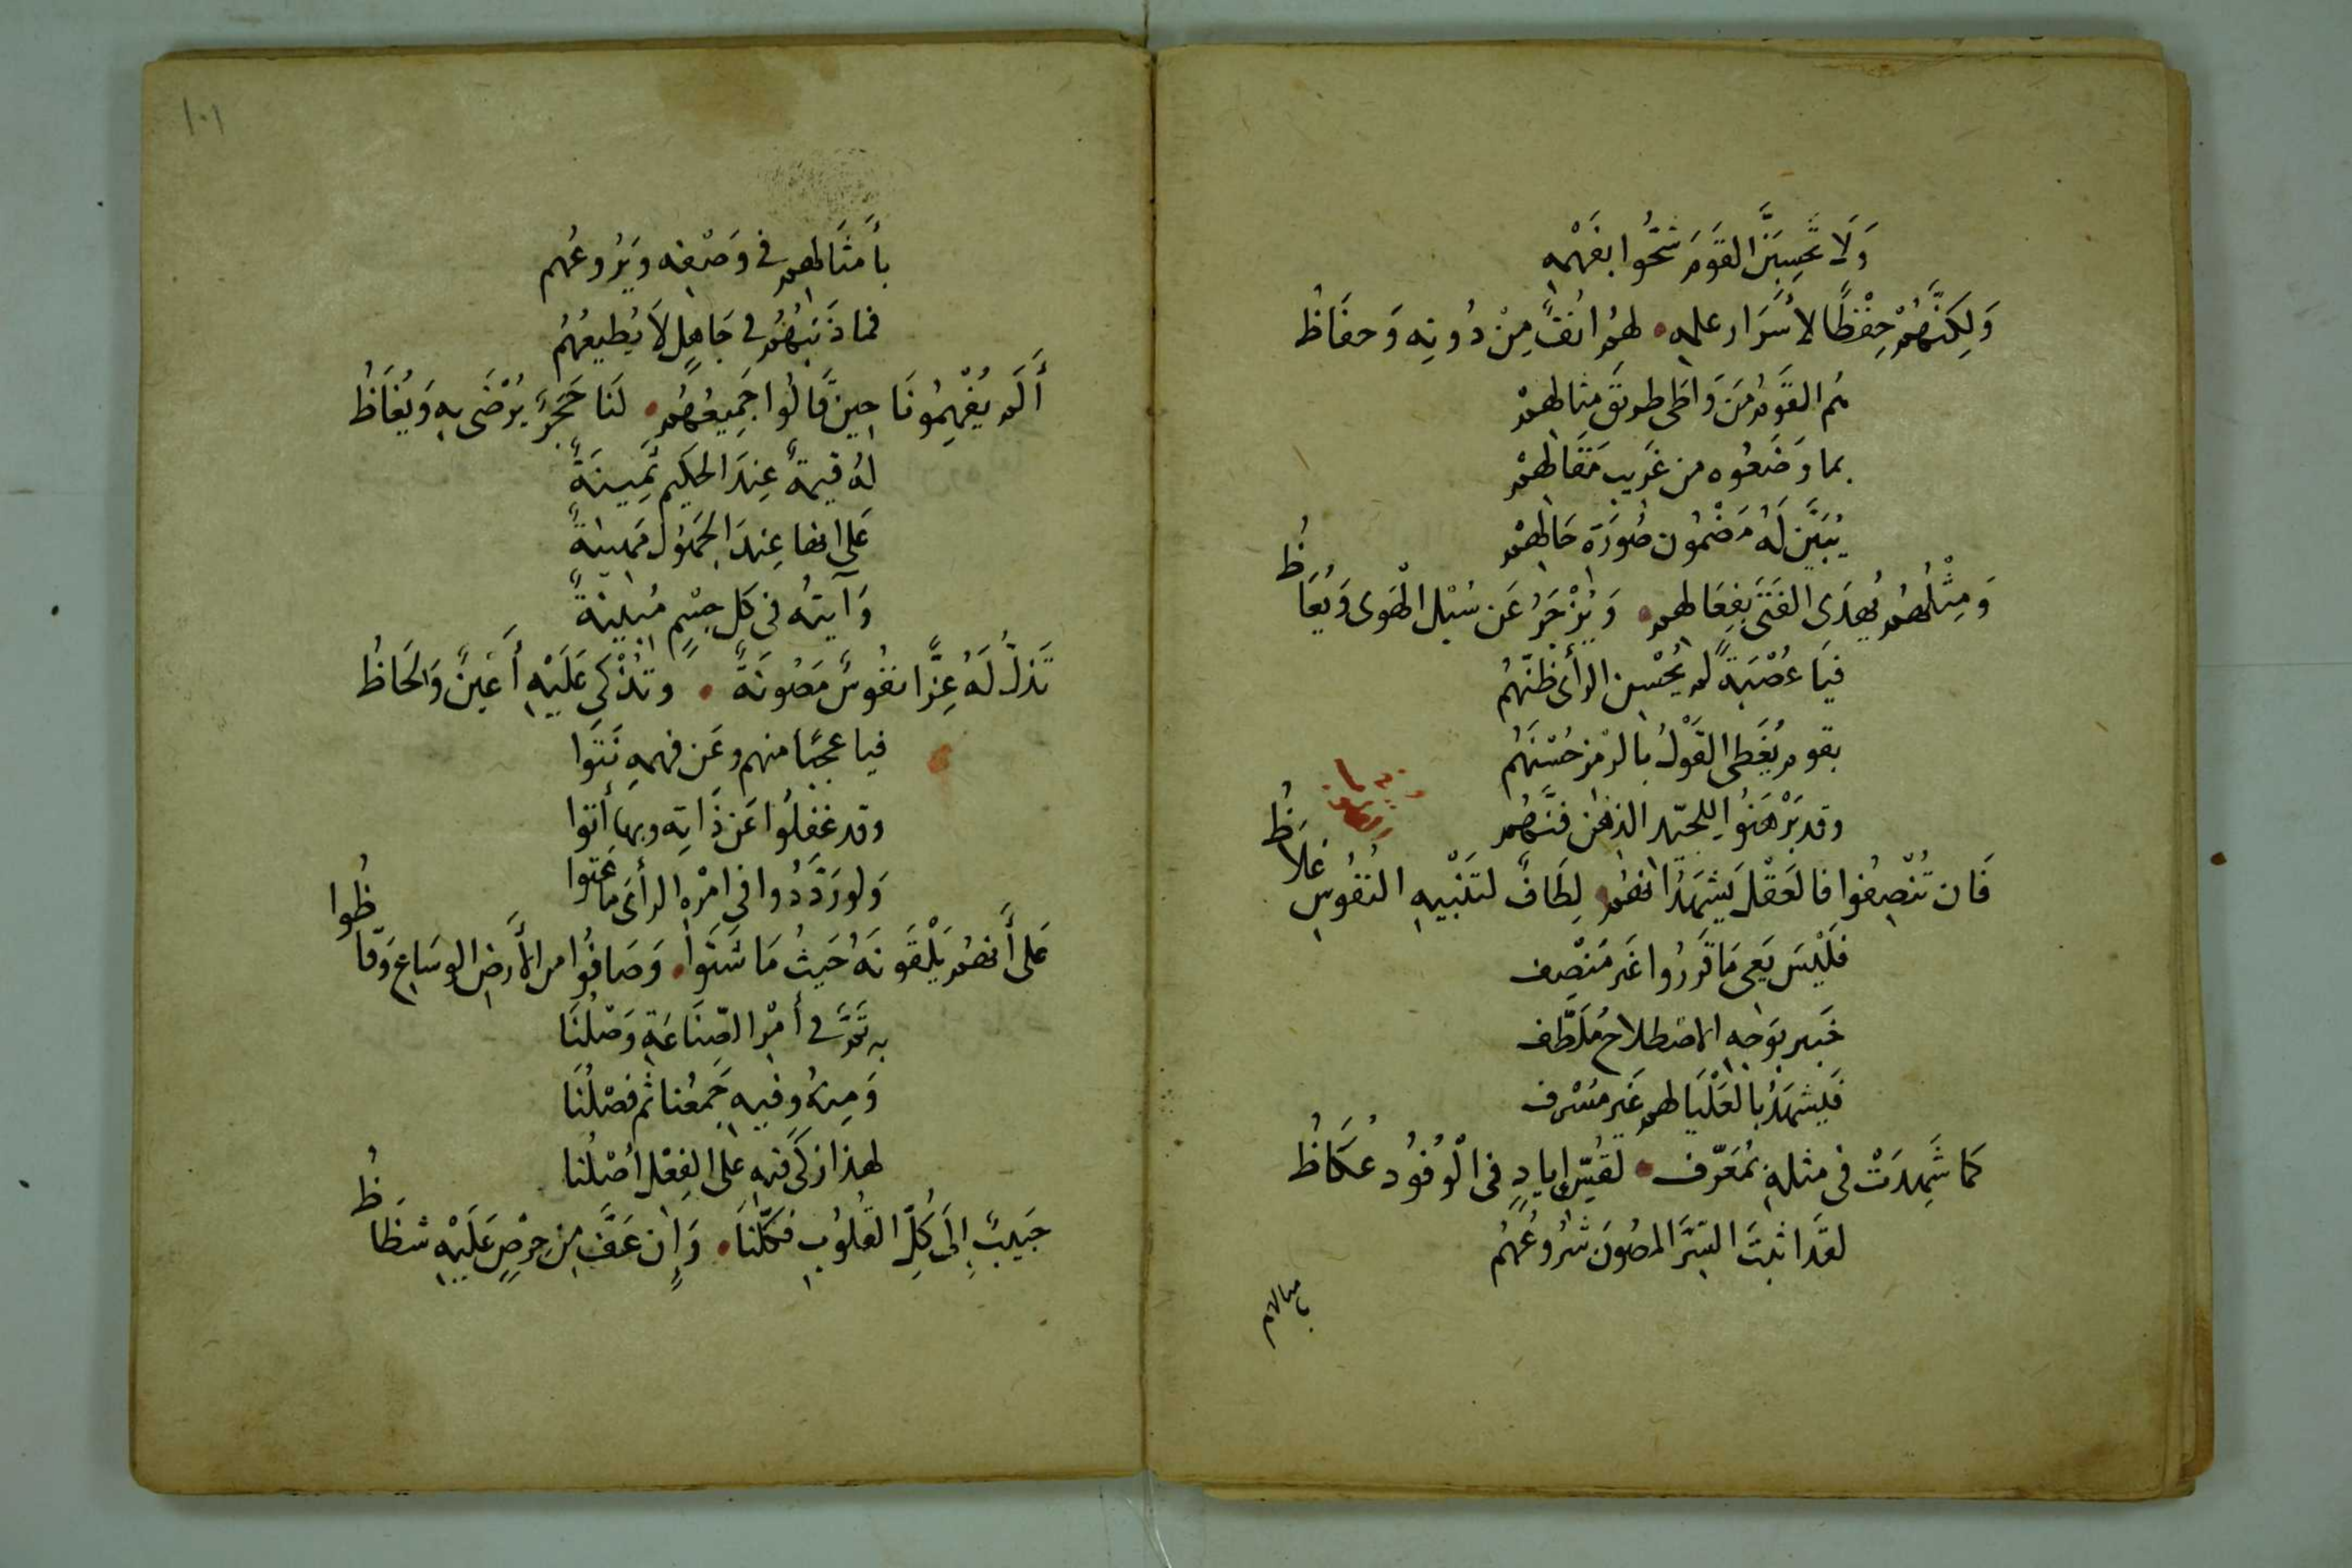 وَلَا تَحْسِبَنَّ القَوْمَ شَحُّوا بفَهْمِهِ
وَلِكنَّهُمْ حِفْظًا لأسْرَار علمه • لهمُ انفٌ مِنْ دُونِه وَحفَاظُ
هُم القَومُ مَن وَاطَى طريقَ مثالهمْ
بما وَضَعُوه من غَريب مَقَالهمْ
يُبَيَّن لَهُ مَضْمُون صُورَة حَالهمْ
وَمِثْلُهُم يُهدَى الفَتَى بفِعَالهم • وَيُزْجَرُ عَن سُبْل الْهَوى وَيُعَاظُ
فيَا عُصْبَةً لم يُحْسِن الرأى ظنّهُم
بقوم يُغَطى القَوْلُ بالرمز حُسْنَهُم
وقد بَرْهَنُوا للجيّد الذهن فَنَّهُم
فَان تُنْصِفُوا فالعَقْل يَشْهَدُ انهُم • لِطَافٌ لتَنْبيهِ النُفُوسِ غلَاظُ
فلَيْسَ يَعى مَا قَررُوا غَير مُنْصِف
خَبير بوَجهِ الاصْطلاح مُلَطَّف
فَليشهَدْ بالعَلْيَا لهم غَير مُسْرف
كمَا شَهِدَتْ فى مثلهِ بمُعَرّف • لقُسّ إيادٍ فى الْوُفُود عُكَاظُ
لقَد اثبتَ السّرَّ المصُونَ شرُوعُهُم
بامثالهم
١٠١
بأمثَالهم فى وَصْفِه ويَرُوعُهُم
فما ذَنبُهُم فى جَاهِلٍ لَا يُطيعُهُمُ
أَلَم يُفْهِمُونَا حِينَ قَالُوا جَمِيعُهُم • لَنَا حَجَرٌ يُرْضَى بهِ وَيُغَاظُ
لهُ قيمةٌ عِندَ الحكِيم ثَمِينَةٌ
عَلى انها عِندَ الجَهُول مَهينَةٌ
وَآيتهُ فى كل جِسْمٍ مُبينَةٌ
تَذلُّ لَهُ عِزًّا نفُوسٌ مَصُونَةٌ • وتُذْكى عَلَيْهِ أَعْينٌ وَلحَاظُ
فيا عجبًا منهم وعَن فهمهِ نَبَوا
وقد غفِلُوا عَن ذَاتِه وبها أتوا
وَلو رَدَّدُوا فى امْرِهِ الرأى مَا عَتوا
عَلى أَنهُم يَلْقَونَهُ حَيثُ مَا شَتَوا • وَصَافُوا من الأرضِ الوسَاعِ وَقَاظُوا
بهِ تَمَّ فى أمْرِ الصّنَاعَةِ وَصْلُنَا
وَمِنهُ وفيهِ جَمعُنا ثم فصْلُنَا
لهذا زكَى فيهِ على الفِعْل أصْلُنا
حَبيبٌ إلَى كُلِّ القُلُوبِ فكلّنَا • وَإن عَفَّ مِن حِرْصٍ عَلَيْهِ شظَاظُ